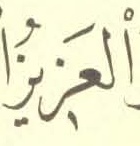 اْلعَزِيزُ